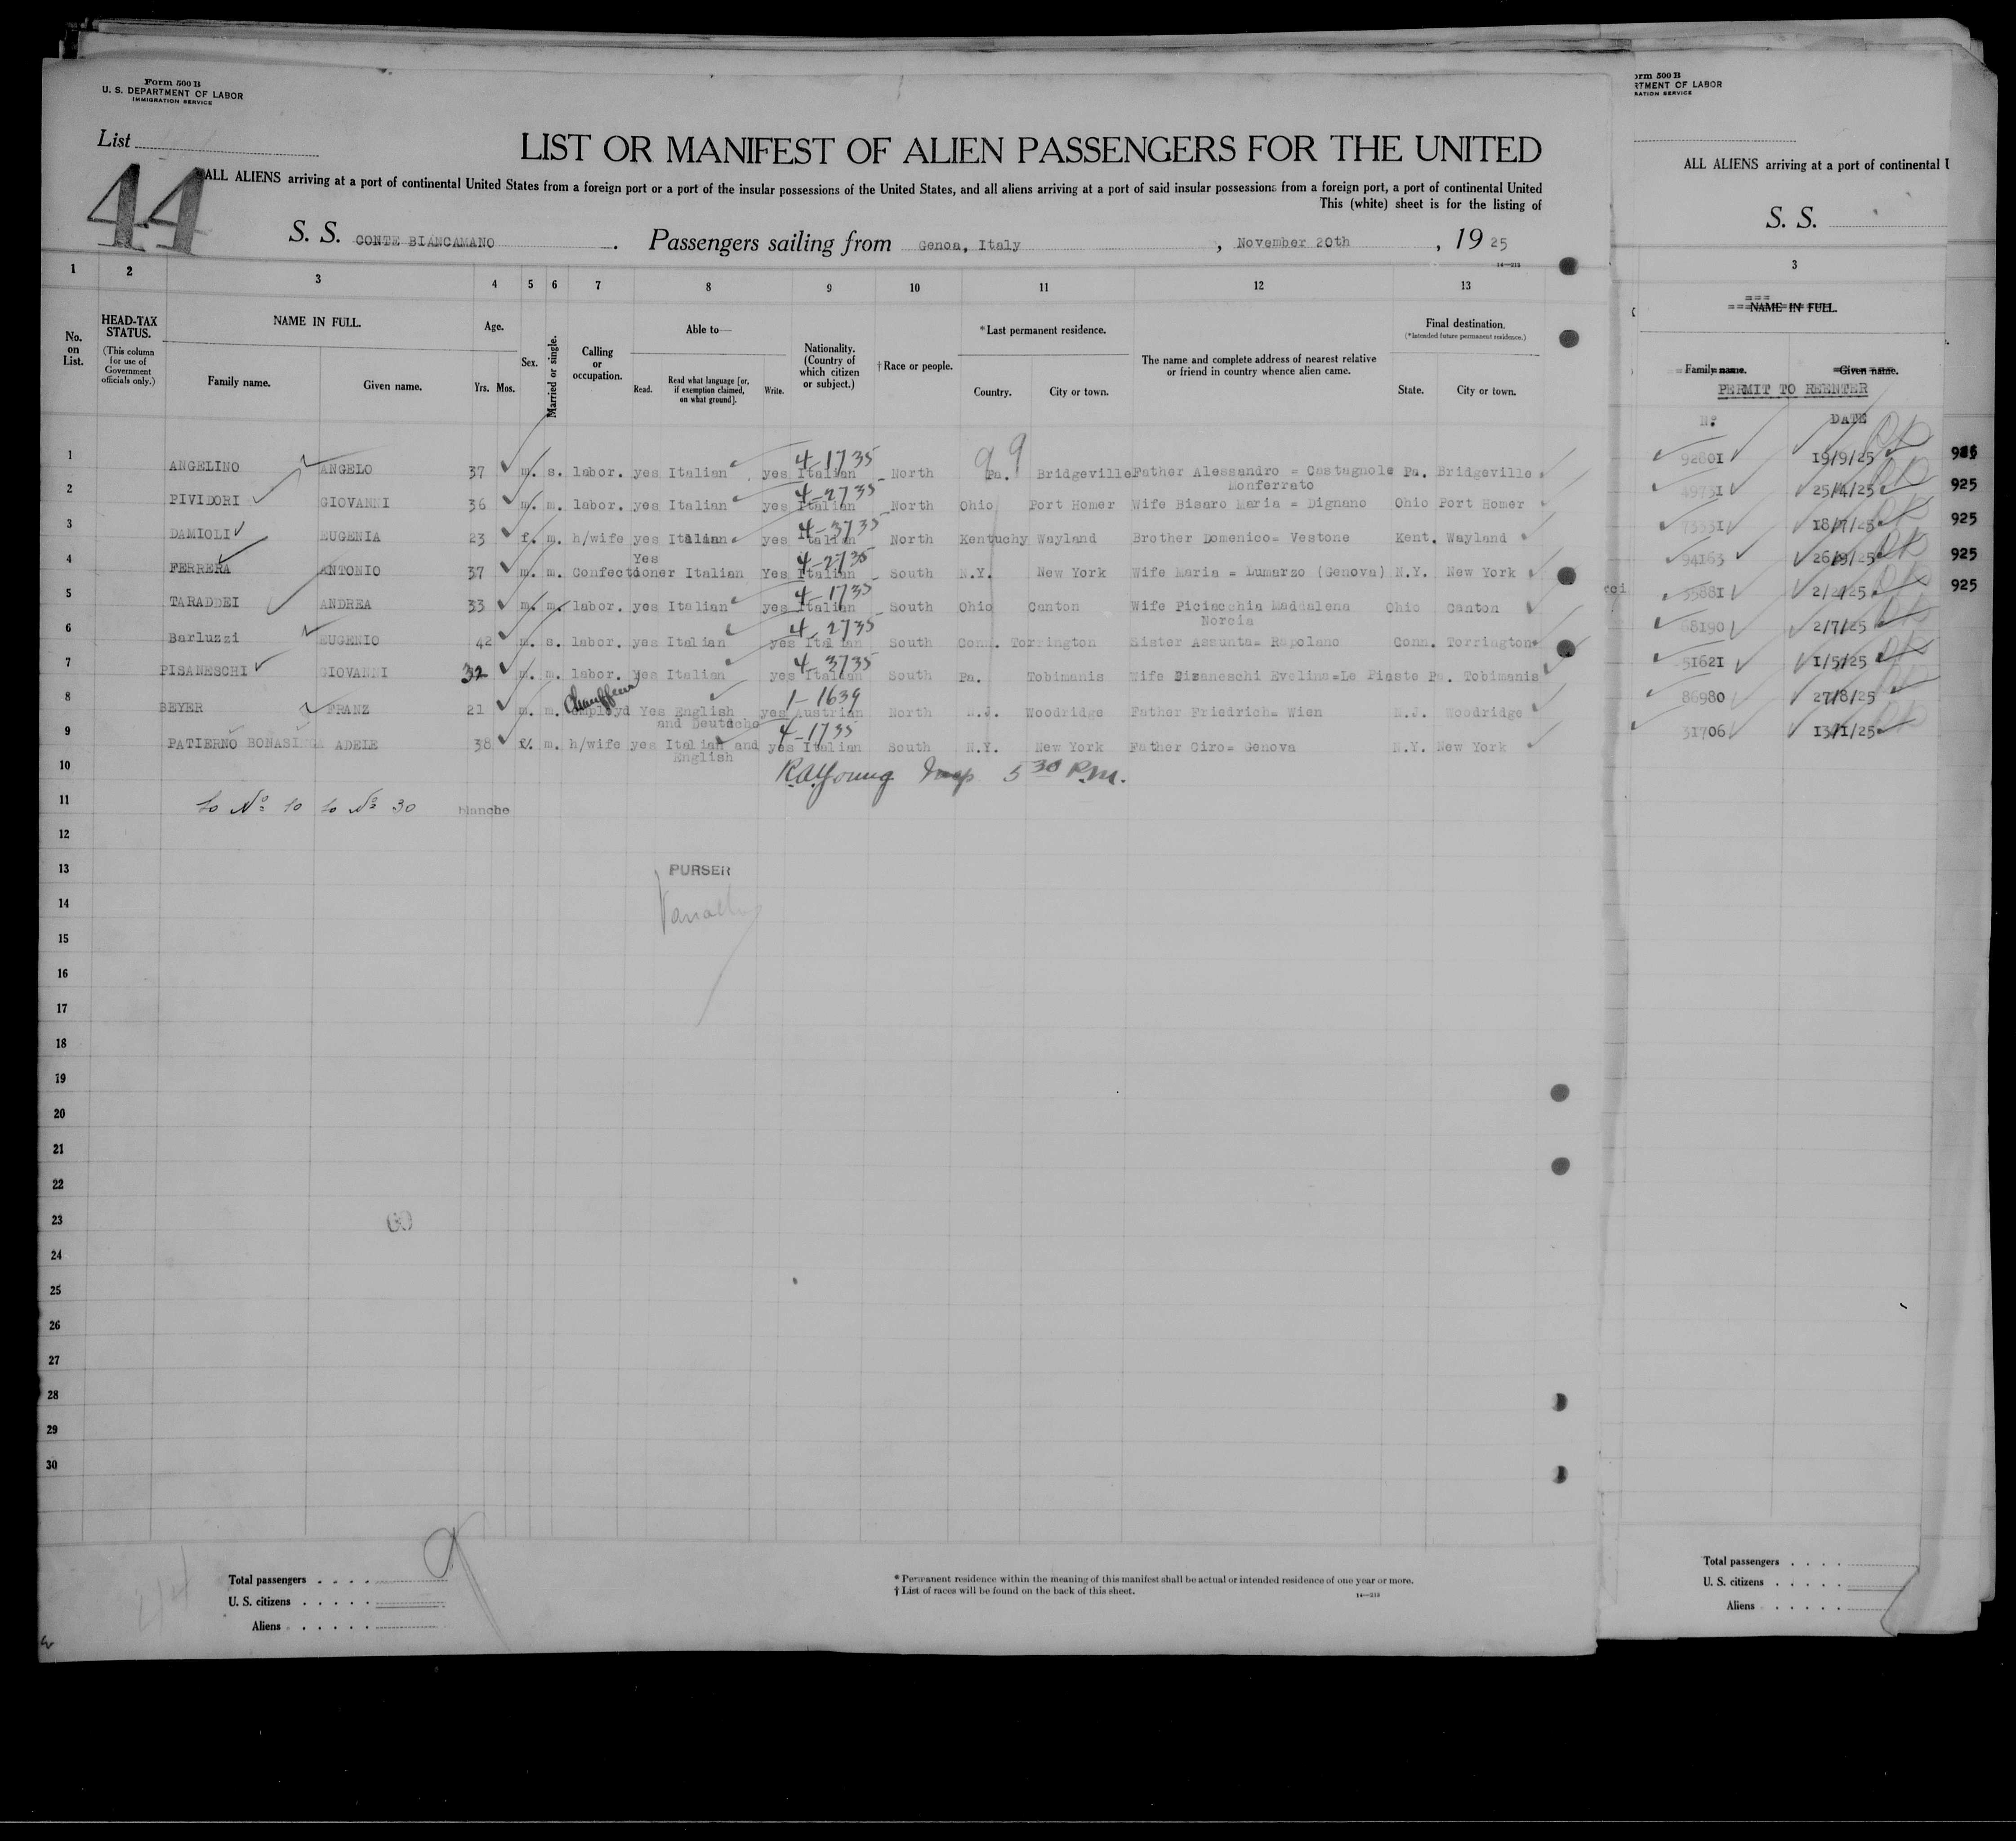 Form 500 B
U. S. DEPARTMENT OF LABOR
IMMIGRATION SERVICE
List
44
LIST OR MANIFEST OF ALIEN PASSENGERS FOR THE UNITED
ALL ALIENS arriving at a port of continental United States from a foreign port or a port of the insular possessions of the United States, and all aliens arriving at a port of said insular possessions from a foreign port, a port of continental United
This (white) sheet is for the listing of
S. S. CONTE BIANCAMANO. Passengers sailing from Genoa, Italy, November 20th, 1925
14—213
1 2 3 4 5 6 7 8 9 10 11 12 13
No. on List.
HEAD-TAX STATUS.
(This column for use of Government officials only.)
NAME IN FULL.
Family name. Given name.
Age.
Yrs. Mos.
Sex.
Married or single.
Calling or occupation.
Able to—
Read. Read what language [or, if exemption claimed, on what ground]. Write.
Nationality. (Country of which citizen or subject.)
†Race or people.
*Last permanent residence.
Country. City or town.
The name and complete address of nearest relative or friend in country whence alien came.
Final destination.
(*Intended future permanent residence.)
State. City or town.
99
4-1735
1 ANGELINO ANGELO 37 m. s. labor. yes Italian yes Italian North Pa. Bridgeville Father Alessandro = Castagnole Pa. Bridgeville
Monferrato
4-2735
2 PIVIDORI GIOVANNI 36 m. m. labor. yes Italian yes Italian North Ohio Port Homer Wife Bisaro Maria = Dignano Ohio Port Homer
4-3735
3 DAMIOLI EUGENIA 23 f. m. h/wife yes Italian yes Italian North Kentuchy Wayland Brother Domenico= Vestone Kent. Wayland
Yes
4-2735
4 FERRERA ANTONIO 37 m. m. Confectioner Italian Yes Italian South N.Y. New York Wife Maria = Lumarzo (Genova) N.Y. New York
4-1735
5 TARADDEI ANDREA 33 m. m. labor. yes Italian yes Italian South Ohio Canton Wife Piciacchia Maddalena Ohio Canton
Norcia
4-2735
6 Barluzzi EUGENIO 42 m. s. labor. yes Italian yes Italian South Conn. Torrington Sister Assunta= Rapolano Conn. Torrington
4-3735
7 PISANESCHI GIOVANNI 32 m. m. labor. Yes Italian yes Italian South Pa. Tobimanis Wife Pizaneschi Evelina=Le Piaste Pa. Tobimanis
Chauffeur
1-1639
8 BEYER FRANZ 21 m. m. employd Yes English yes Austrian North N.J. Woodridge Father Friedrich= Wien N.J. Woodridge
and Deutsche
4-1735
9 PATIERNO BONASINGA ADELE 38 f. m. h/wife yes Italian and yes Italian South N.Y. New York Father Ciro= Genova N.Y. New York
English
10 R.A.Young Insp 5 30 P.M.
11 to No 10 to No 30 blanche
12
13 PURSER
14
15
16
17
18
19
20
21
22
23 60
24
25
26
27
28
29
30
Total passengers
U. S. citizens
Aliens
9
* Permanent residence within the meaning of this manifest shall be actual or intended residence of one year or more.
† List of races will be found on the back of this sheet.
14—213
orm 500 B
RTMENT OF LABOR
RATION SERVICE
ALL ALIENS arriving at a port of continental U
S. S.
3
NAME IN FULL.
Family name. Given name.
PERMIT TO REENTER
No DATE
92801 19/9/25 OK
49751 25/4/25 OK 925
18/7/25 OK 925
94163 26/9/25 OK 925
2/2/25 OK 925
68190 2/7/25 OK
51621 1/5/25
86980 27/8/25
31706 13/1/25
Total passengers
U. S. citizens
Aliens